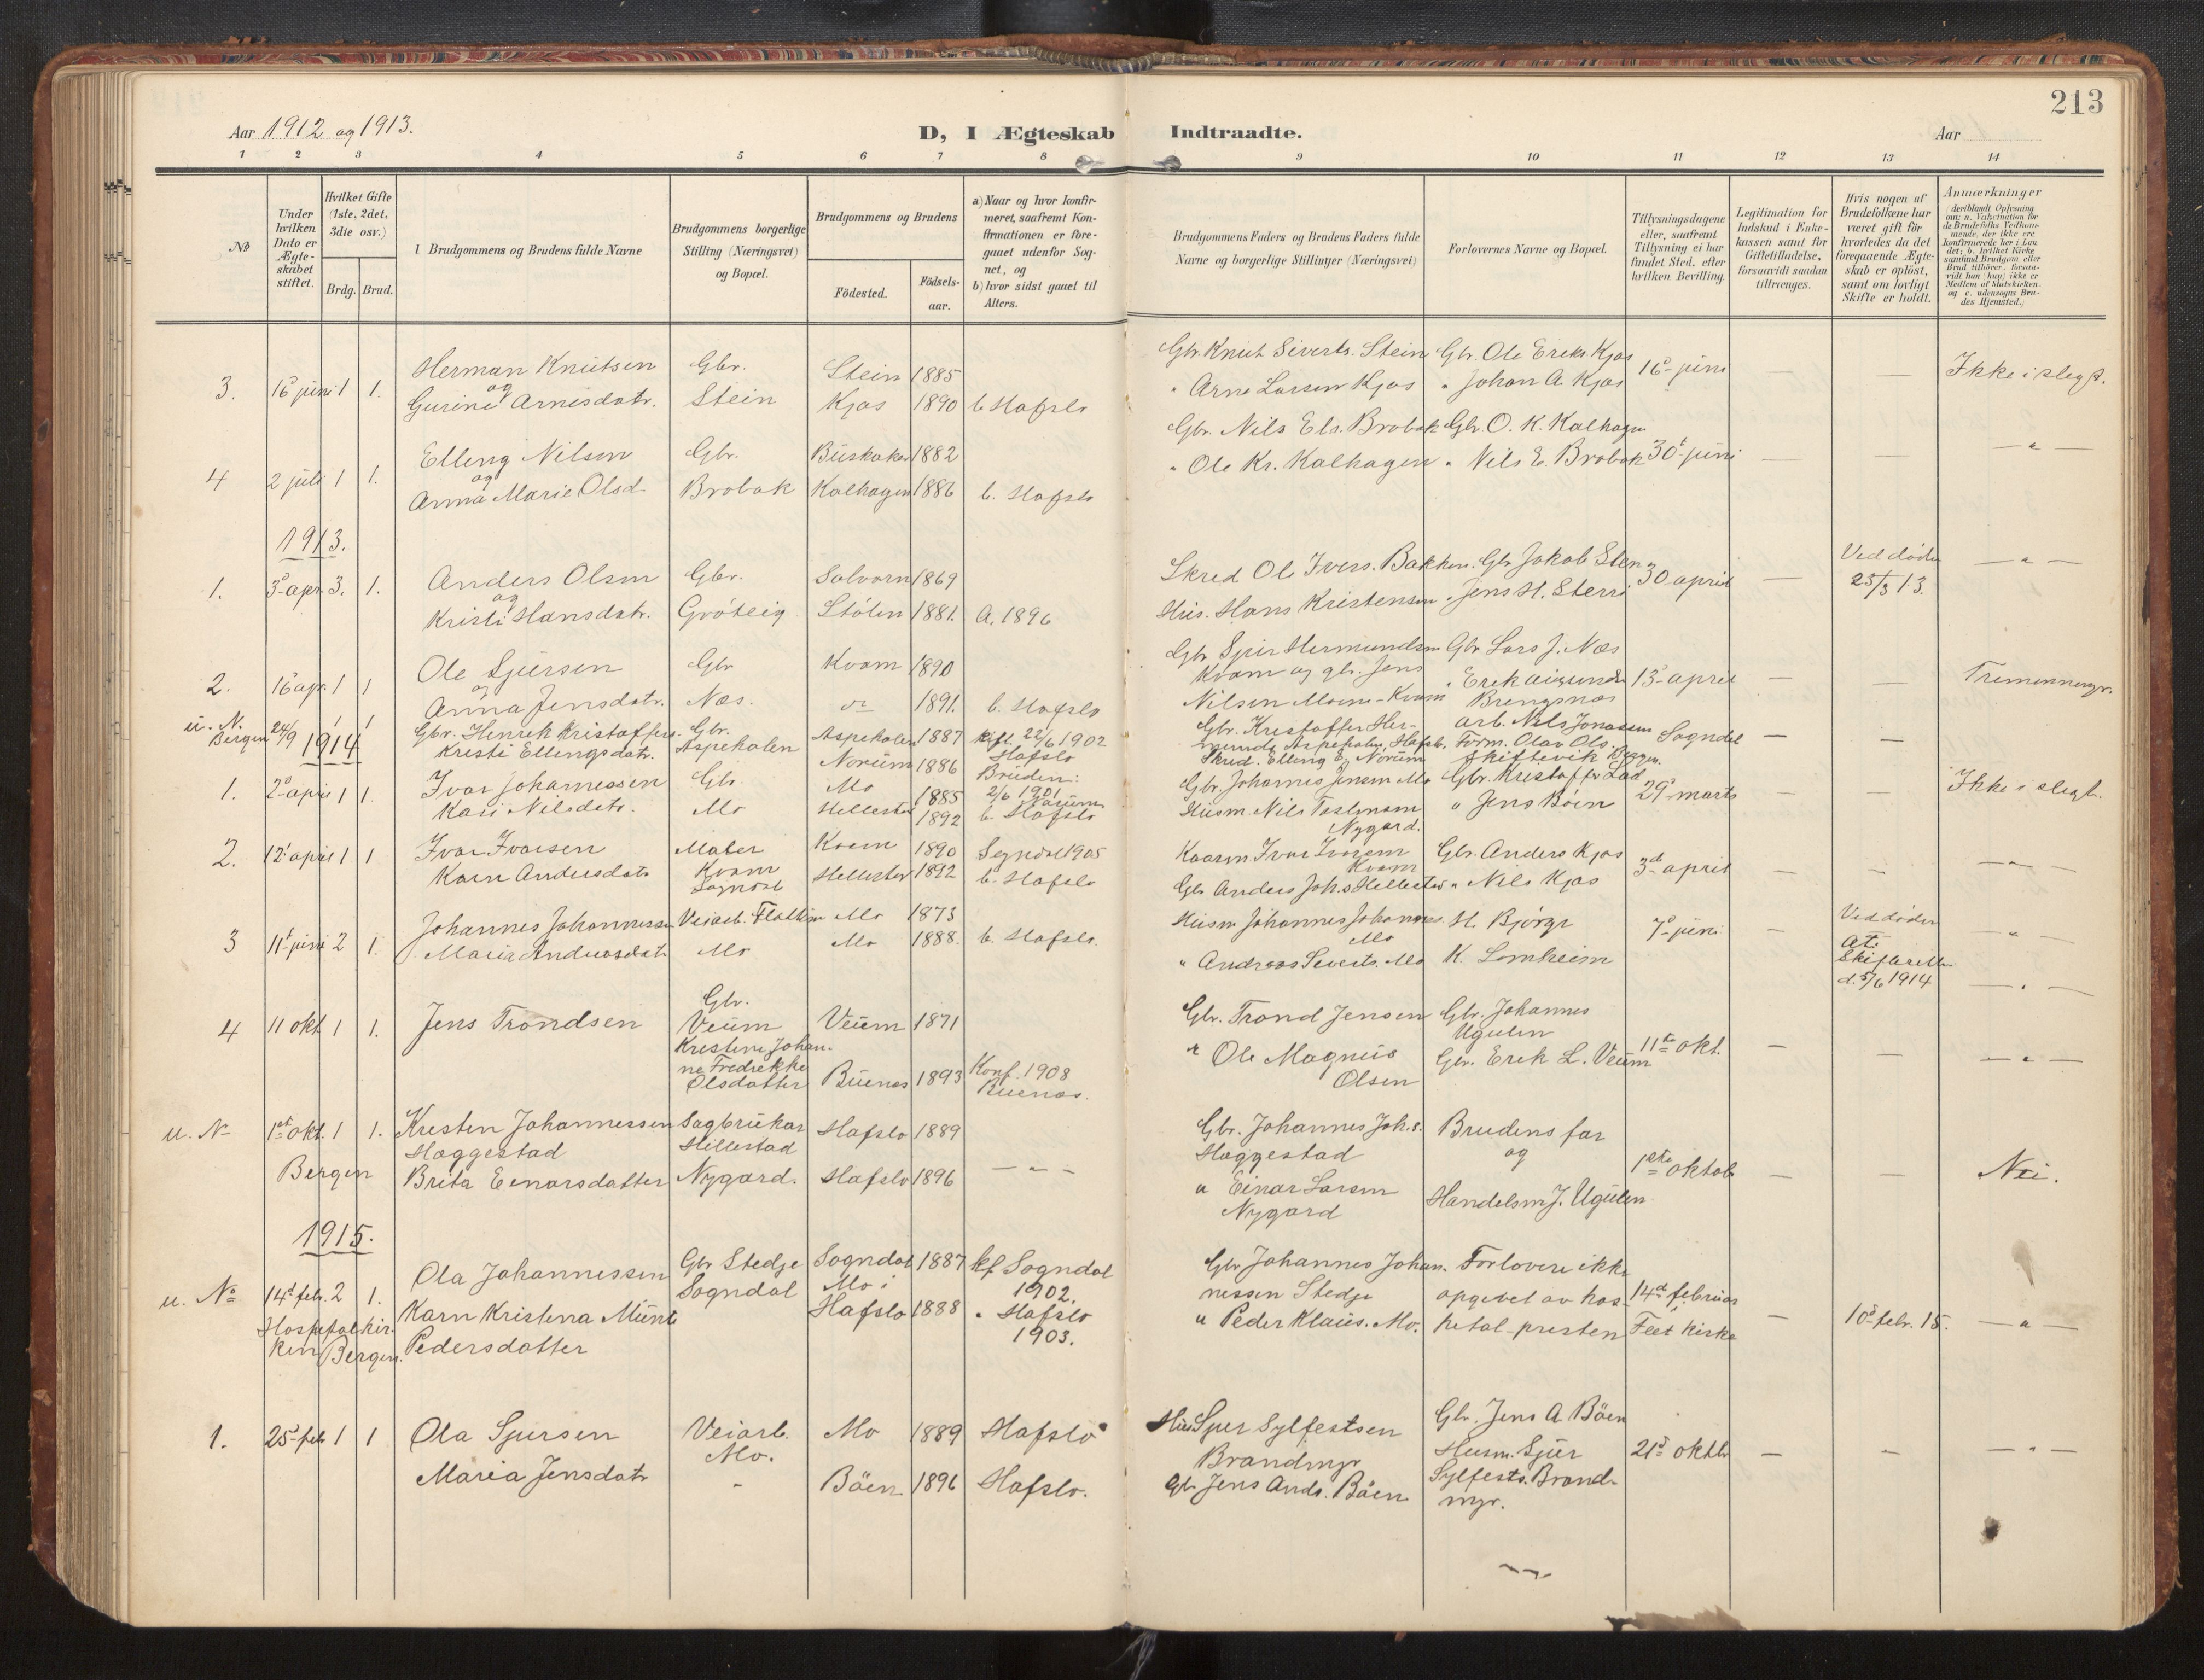 213
Aar 1912 og 1913.
D, I Ægteskab Indtraadte.
Aar
1 2 3 4 5 6 7 8 9 10 11 12 13 14
No
Under hvilken Dato er Ægteskabet stiftet.
Hvilket Gifte (1ste, 2det, 3die osv.)
Brdg. Brud.
1. Brudgommens og Brudens fulde Navne
Brudgommens borgerlige Stilling (Næringsvei) og Bopæl.
Brudgommens og Brudens
Födested.
Födsels-aar.
a) Naar og hvor konfirmeret, saafremt Konfirmationen er foregaaet udenfor Sognet, og
b) hvor sidst gaaet til Alters.
Brudgommens Faders og Brudens Faders fulde Navne og borgerlige Stillinger (Næringsvei)
Forlovernes Navne og Bopæl.
Tillysningsdagene eller, saafremt Tillysning ei har fundet Sted, efter hvilken Bevilling.
Legitimation for Indskud i Enkekassen samt for Giftetilladelse, forsaavidt saadan tiltrænges.
Hvis nogen af Brudefolkene har været gift för hvorledes da det foregaaende Ægteskab er oplöst, samt om lovligt Skifte er holdt.
Anmærkninger
(deriblandt Oplysning om: a. Vakcination for de Brudefolks Vedkommende, der ikke ere konfirmerede her i Landet; b. hvilket Kirkesamfund Brudgom eller Brud tilhörer, forsaavidt han (hun) ikke er Medlem af Statskirken, og c. udensogns Brudes Hjemsted.)
3. 16 juni 1 1. Herman Knutsen Gbr. Stein 1885 Gbr. Knut Siverts. Stein Gbr. Ole Ereks. Kjos 16 juni — — Ikke i slegt.
og
Gurine Arnesdatr. Stein Kjos 1890 b Hafslo " Arne Larsen Kjos " Johan A. Kjos
4 2 juli 1 1. Elleng Nilsen Gbr. 1882 Gbr. Nils Brobak Gbr. O. K. Kalhagen 30 juni — — — " —
og
Anna Marie Olsd. Brobak Kalhagen 1886 b. Hafslo " Ole Kr. Kalhagen " Nils E. Brobak
1913.
1. 3 apr. 3. 1. Anders Olsen Gbr. Solvorn 1869 Ole Ivers. Bakken. Gbr Jakob 30 april — Ved döden 25/3 13. — " —
og
Kristi Hansdatr. Gröteig Stölen 1881. A. 1896 Hus. Hans Kristensen " Jens H.
2. 16 apr. 1 1 Ole Sjursen Gbr Kvam 1890 Gbr Hermundsen Gbr Lars J. Næs 13 april — — Tremenninger.
og
Anna Jensdatr. Næs. 1891. b. Hafslo Kvam og gbr. Jens
Nilsen Kvam
u. N. Bergen 24/9 1 1 Gbr. Henrek Kristoffers. Gbr. Aspehalen 1887 22/6 1902 Gbr. Kristoffer Her- arb. Nils Jonassen Sogndal — —
1914
Kristi Ellengsdatr. Aspehalen Norum 1886 Hafslo Form. Olav Ols.
Elleng E. Norum Skiftevik
1. 2 april 1 1. Ivar Johannessen Gbr. Mo 1885 Bruden: 2/6 1901 Gbr. Johannes Jensen Mo Gbr. Kristoffer Lad 29 marts — Ikke i slegt.
Kari Nilsdatr. Mo 1892 b. Hafslo Husm. Nils " Jens Böen
Nygard.
2. 12 april 1 1 Ivar Ivarsen Maler Kvam 1890 Sogndal 1905 Ivar Ivarsen Gbr. Anders Kjos 3 april — — — " —
Kvam
Karn Andersdatr Kvam Sogndal 1892 b. Hafslo Gbr Anders Johs " Nils Kjos
3 11 juni 2 1. Johannes Johannessen Veiarb. Mo 1873 Husm Johannes Johannes. H. Björge 7 juni Ved döden — " —
Mo
Maria Andreasdatr Mo Mo 1888. b. Hafslo. " Andreas Siverts. Mo K. Lomheim
d. 5/6 1914
4 11 okt 1 1. Jens Trondsen Gbr. Veum Veum 1871 Gbr. Trond Jensen Gbr. Johannes Ugulen 11te okt. — — — " —
Kristine Johan-
ne Fredrekke
Olsdatter 1893 Konf. 1908 " Ole Magnus Olsen Gbr. Erek L. Veum
u. No 1ste okt. 1 1. Kresten Johannessen Sagbrukar Hafslo 1889 Gbr. Johannes Joh.s. Brudens far
Haggestad Hillestad Haggestad og
Bergen Brita Eenarsdatter Nygard. Hafslo 1896 — " — " Einar Larsen Handelsm J. Ugulen 1ste oktob — — Nei.
Nygard
1915.
u. No 14d febr. 2 1. Ola Johannessen Gbr Stedje Sogndal 1887 kf Sogndal 1902. Gbr Johannes Johan- Forlovere ikke 14d februar — 10 febr. 15. — " —
Sogndal Mo i nessen Stedje opgevet av hos-
Hospetalkir- Karn Kristina Hafslo 1888 " Hafslo 1903. " Peder Klaus. Mo. petal-presten kirke
ken Bergen. Pedersdatter
1. 25 feb 1 1 Ola Sjursen Veiarb. Mo 1889 Hafslo Hus Sjur Sylfestsen Gbr. Jens A. Böen 21 oktbr — — — " —
Mo. Brandmyr Husm. Sjur
Maria Jensdatr - Böen 1896 Hafslo. Gbr Jens Andr. Böen Sylfests. Brand-
myr.